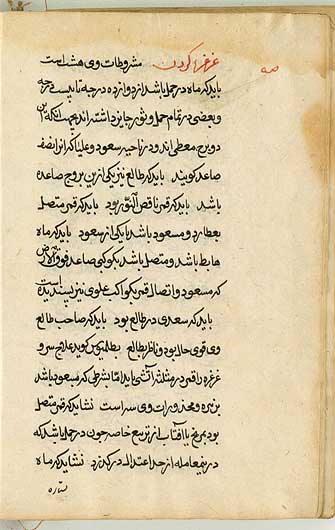 غرغرا کردن مشروطات وی هشت است
باید که ماه در حمل باشد از دوازده درجه تا بیست درجه
و بعضی در تمام حمل و ثور جایز داشته‌اند بجهت آنکه این
دو برج معطی‌اند و در ناحیه سعود و علیا که آنرا نصف
صاعد کویند باید که طالع نیز یکی ازین بروج صاعده
باشد باید که قمر ناقص النور بود باید که قمر متصل
بعطارد و مسعود باشد یا یکی از سعود باید که ماه
هابط باشد و متصل باشد بکوکبی صاعد فوق الارض
که مسعود و اتصال قمر بکواکب علوی نیز پسندیده است
باید که سعدی در طالع بود باید که صاحب طالع
وی قوی حال بود و ناظر بطالع بطلمیوس کوید علاج سر و
غرغره را قمر در مثلثه آتشی باید اما بشرطی که مسعود باشد
بزهره و محذورات وی سه است نشاید که قمر متصل
بود بمریخ یا آفتاب از تربیع خاصه چون در حمل باشد که
در نیم معامله از حد اعتدال در کذرد نشاید که ماه